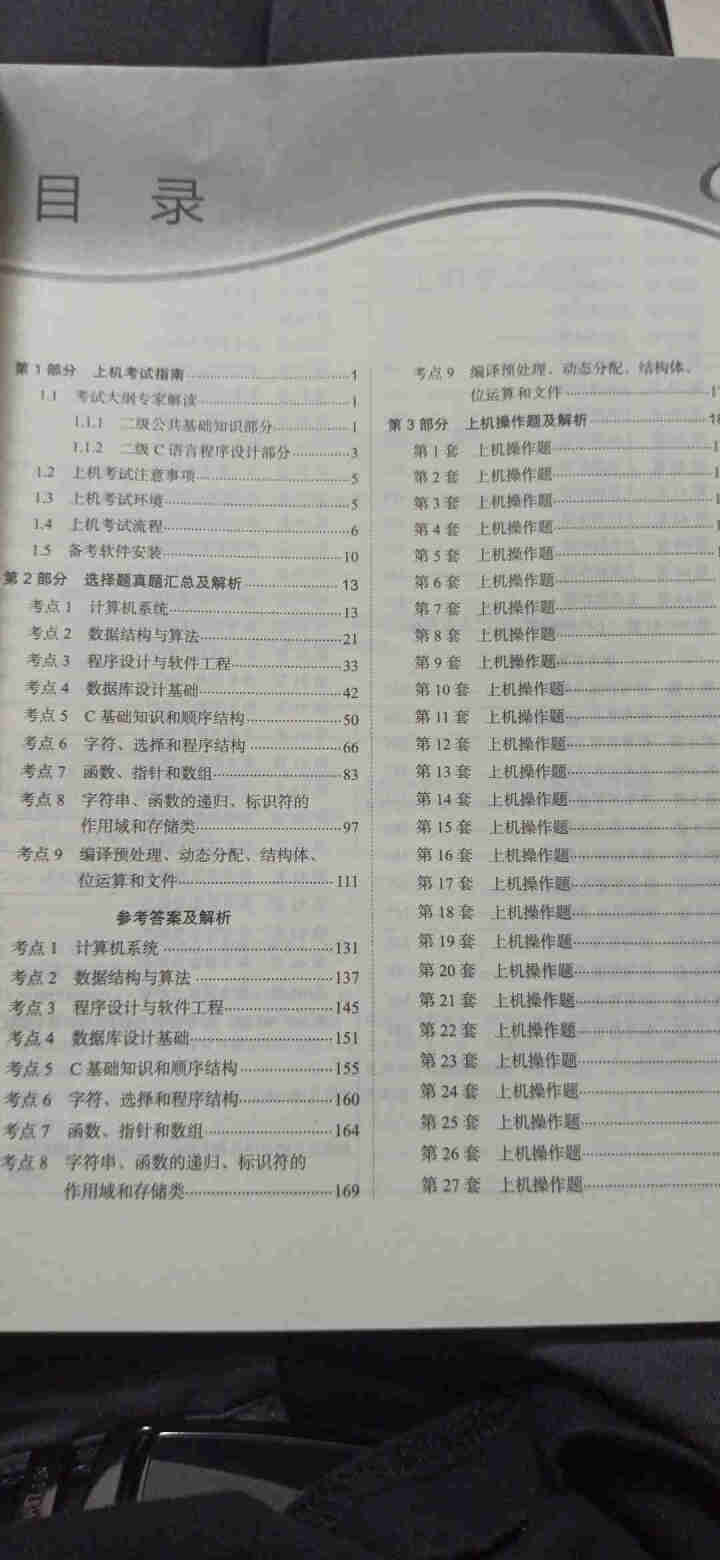 目 录
第1部分 上机考试指南 1
1.1 考试大纲专家解读 1
1.1.1 二级公共基础知识部分 1
1.1.2 二级C语言程序设计部分 3
1.2 上机考试注意事项 5
1.3 上机考试环境 5
1.4 上机考试流程 6
1.5 备考软件安装 10
第2部分 选择题真题汇总及解析 13
考点1 计算机系统 13
考点2 数据结构与算法 21
考点3 程序设计与软件工程 33
考点4 数据库设计基础 42
考点5 C基础知识和顺序结构 50
考点6 字符、选择和程序结构 66
考点7 函数、指针和数组 83
考点8 字符串、函数的递归、标识符的
作用域和存储类 97
考点9 编译预处理、动态分配、结构体、
位运算和文件 111
参考答案及解析
考点1 计算机系统 131
考点2 数据结构与算法 137
考点3 程序设计与软件工程 145
考点4 数据库设计基础 151
考点5 C基础知识和顺序结构 155
考点6 字符、选择和程序结构 160
考点7 函数、指针和数组 164
考点8 字符串、函数的递归、标识符的
作用域和存储类 169
考点9 编译预处理、动态分配、结构体、
位运算和文件
第3部分 上机操作题及解析
第1套 上机操作题
第2套 上机操作题
第3套 上机操作题
第4套 上机操作题
第5套 上机操作题
第6套 上机操作题
第7套 上机操作题
第8套 上机操作题
第9套 上机操作题
第10套 上机操作题
第11套 上机操作题
第12套 上机操作题
第13套 上机操作题
第14套 上机操作题
第15套 上机操作题
第16套 上机操作题
第17套 上机操作题
第18套 上机操作题
第19套 上机操作题
第20套 上机操作题
第21套 上机操作题
第22套 上机操作题
第23套 上机操作题
第24套 上机操作题
第25套 上机操作题
第26套 上机操作题
第27套 上机操作题